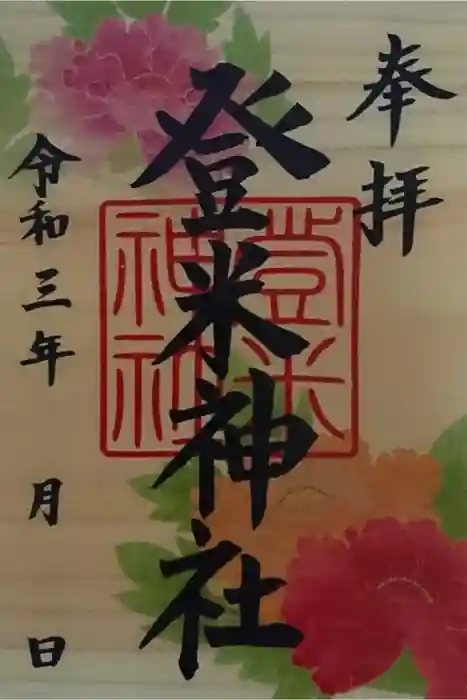 奉拝
登米神社
登米神社
令和三年 月 日